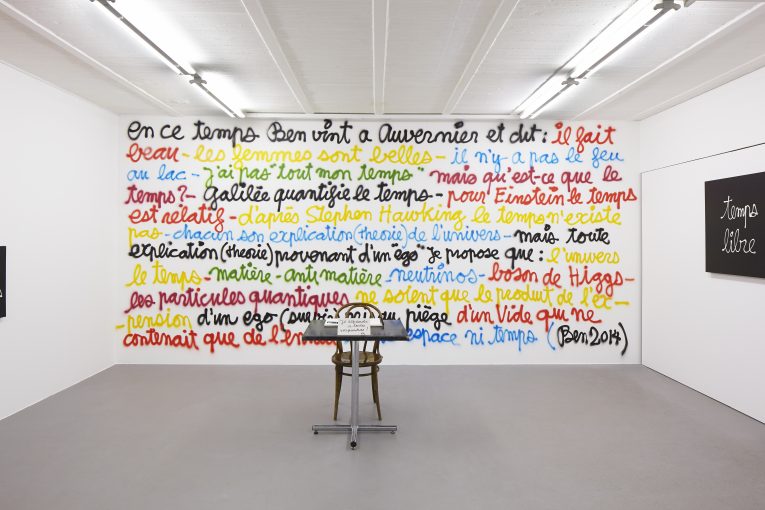 en ce temps Ben vint a Auvernier et dit: il fait
beau - les femmes sont belles - il n'y a pas le feu
au lac - "j'ai pas tout mon temps" mais qu'est-ce que le
temps? - Galilée quantifie le temps - pour Einstein le temps
est relatif - d'après Stephen Hawking le temps n'existe
pas - chacun son explication (theorie) de l'univers - mais toute
explication (theorie) provenant d'un "ego" je propose que: l'univers
le temps - matière - anti matière neutrinos - boson de Higgs -
les particules quantiques ne soient que le produit de l'ex-
-pension d'un ego (survie) piège d'un Vide qui ne
contenait que de l'en espace ni temps (Ben 2014)
temps
libre